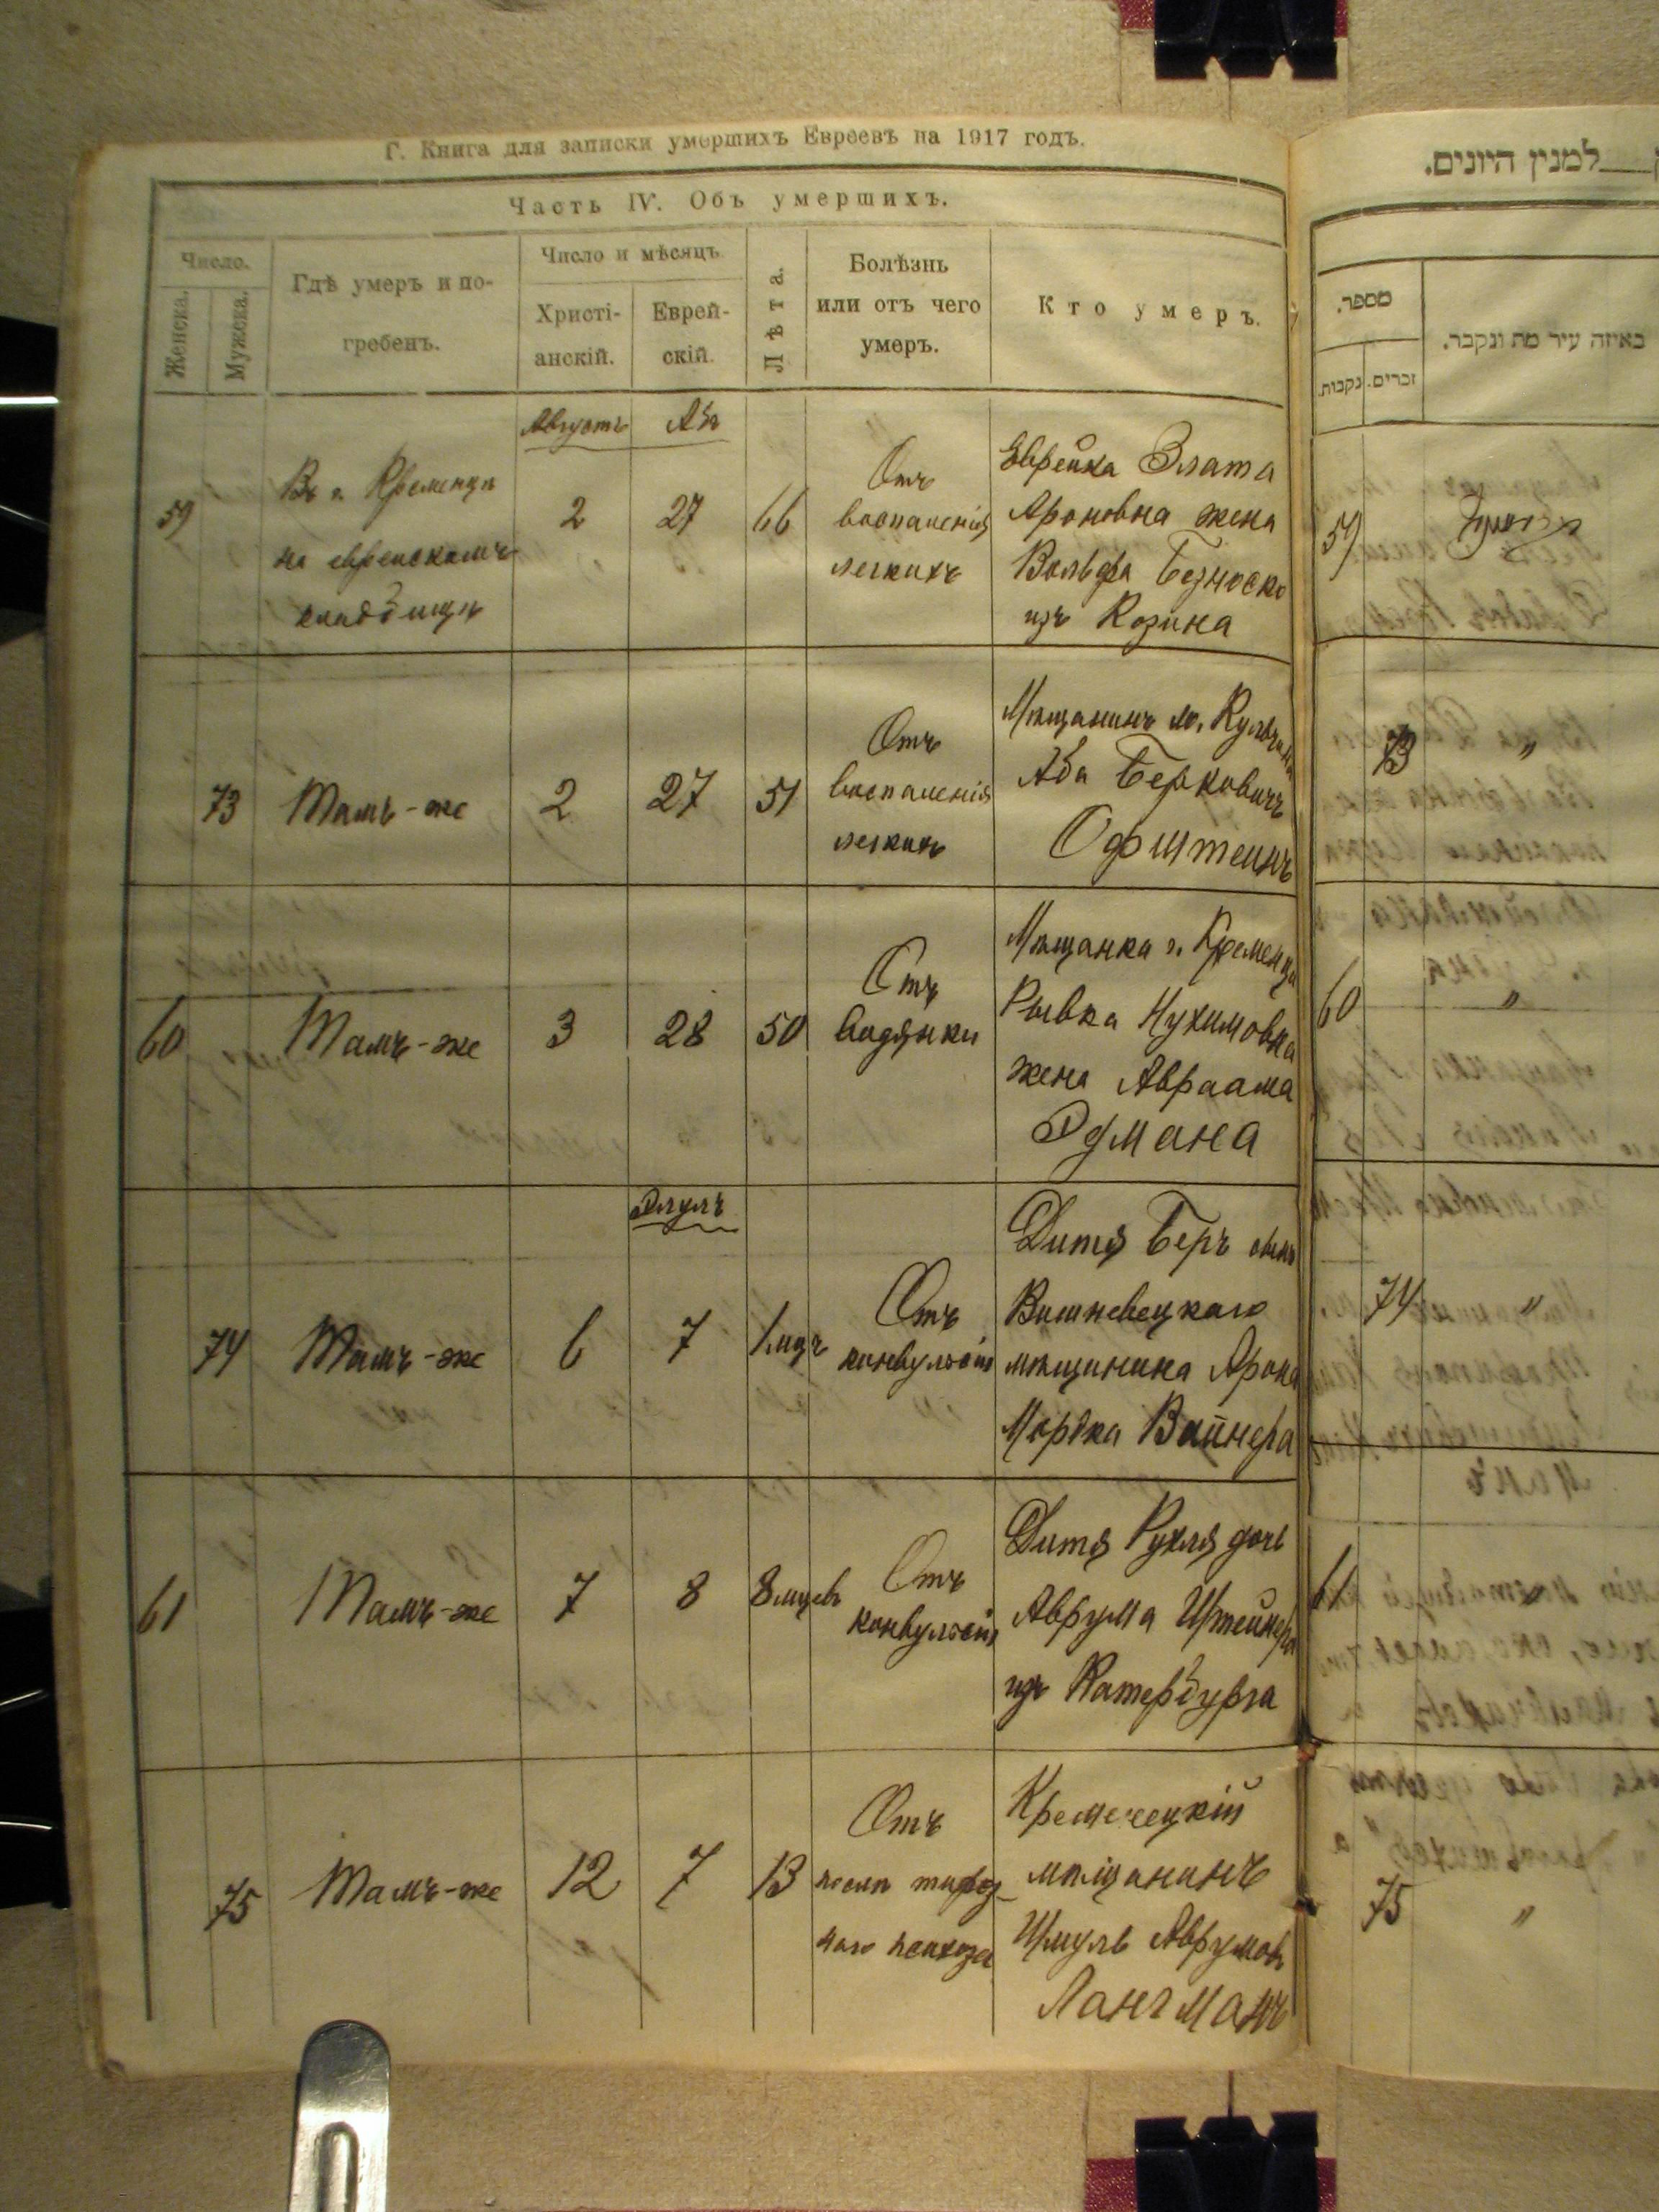 Г. Книга для записки умершихъ Евреевъ на 1917 годъ.
Часть IV. Объ умершихъ.
Число.
Женска.
Мужска.
Гдѣ умеръ и по-
гребенъ.
Число и мѣсяцъ
Христі-
анскій.
Еврей-
скій.
Лѣта.
Болѣзнь
или отъ чего
умеръ.
Кто умеръ.
Августъ
Абъ
59
Въ г. Кременцѣ
на еврейскомъ
кладбищѣ
2
27
66
Отъ
воспаленія
легкихъ
Еврейка Злата
Ароновна жена
Вольфа Безноско
изъ Козина
73
Тамъ-же
2
27
51
Отъ
воспаленія
легкихъ
Мѣщанинъ м.
Аба Берковичъ
Офштейнъ
60
Тамъ-же
3
28
50
Отъ
водянки
Мѣщанка г. Кременца
Рывка Нухимовна
жена Авраама
74
Элулъ
Тамъ-же
6
7
1 мцъ
Отъ
конвульсій
Дитя Беръ сынъ
Вишневецкаго
мѣщанина Арона
Мордка Вайнера
61
Тамъ-же
7
8
8 мцевъ
Отъ
конвульсій
Дитя Рухля дочь
Аврума Штейнера
изъ Катербурга
75
Тамъ-же
12
7
13
Отъ
послѣ тифоз-
наго психоза
Кременецкій
мѣщанинъ
Шмуль Аврумовъ
Лангманъ
למנין היונים.
מספר.
נקבות.
זכרים.
באיזה עיר מת ונקבר.
59
73 "
60 "
74 "
61 "
75 "